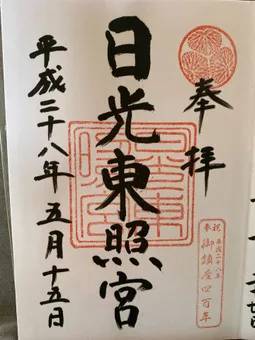 奉拝
日光東照宮
平成二十八年五月十五日
奉祝
平成二十八年
御鎮座四百年